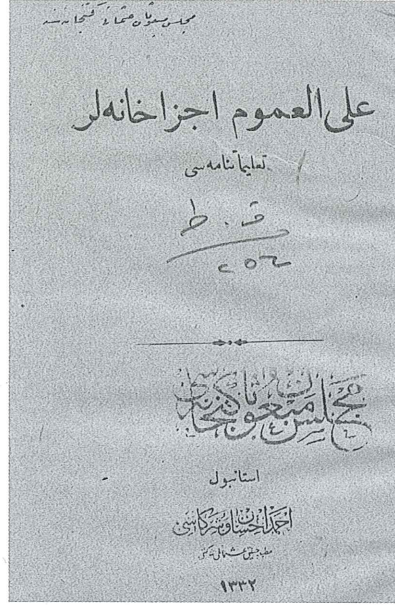 مجلس مبعوثان عثمانی کتبخانه سنه
علی العموم اجزاخانه‌لر
تعلیماتنامه‌سی
ق . ط
٢٥٤
مجلس مبعوثان کتبخانه‌سی
استانبول
احمد احسان و شرکاسی
مطبعه‌جیلق عثمانلی شرکتی
١٣٣٢